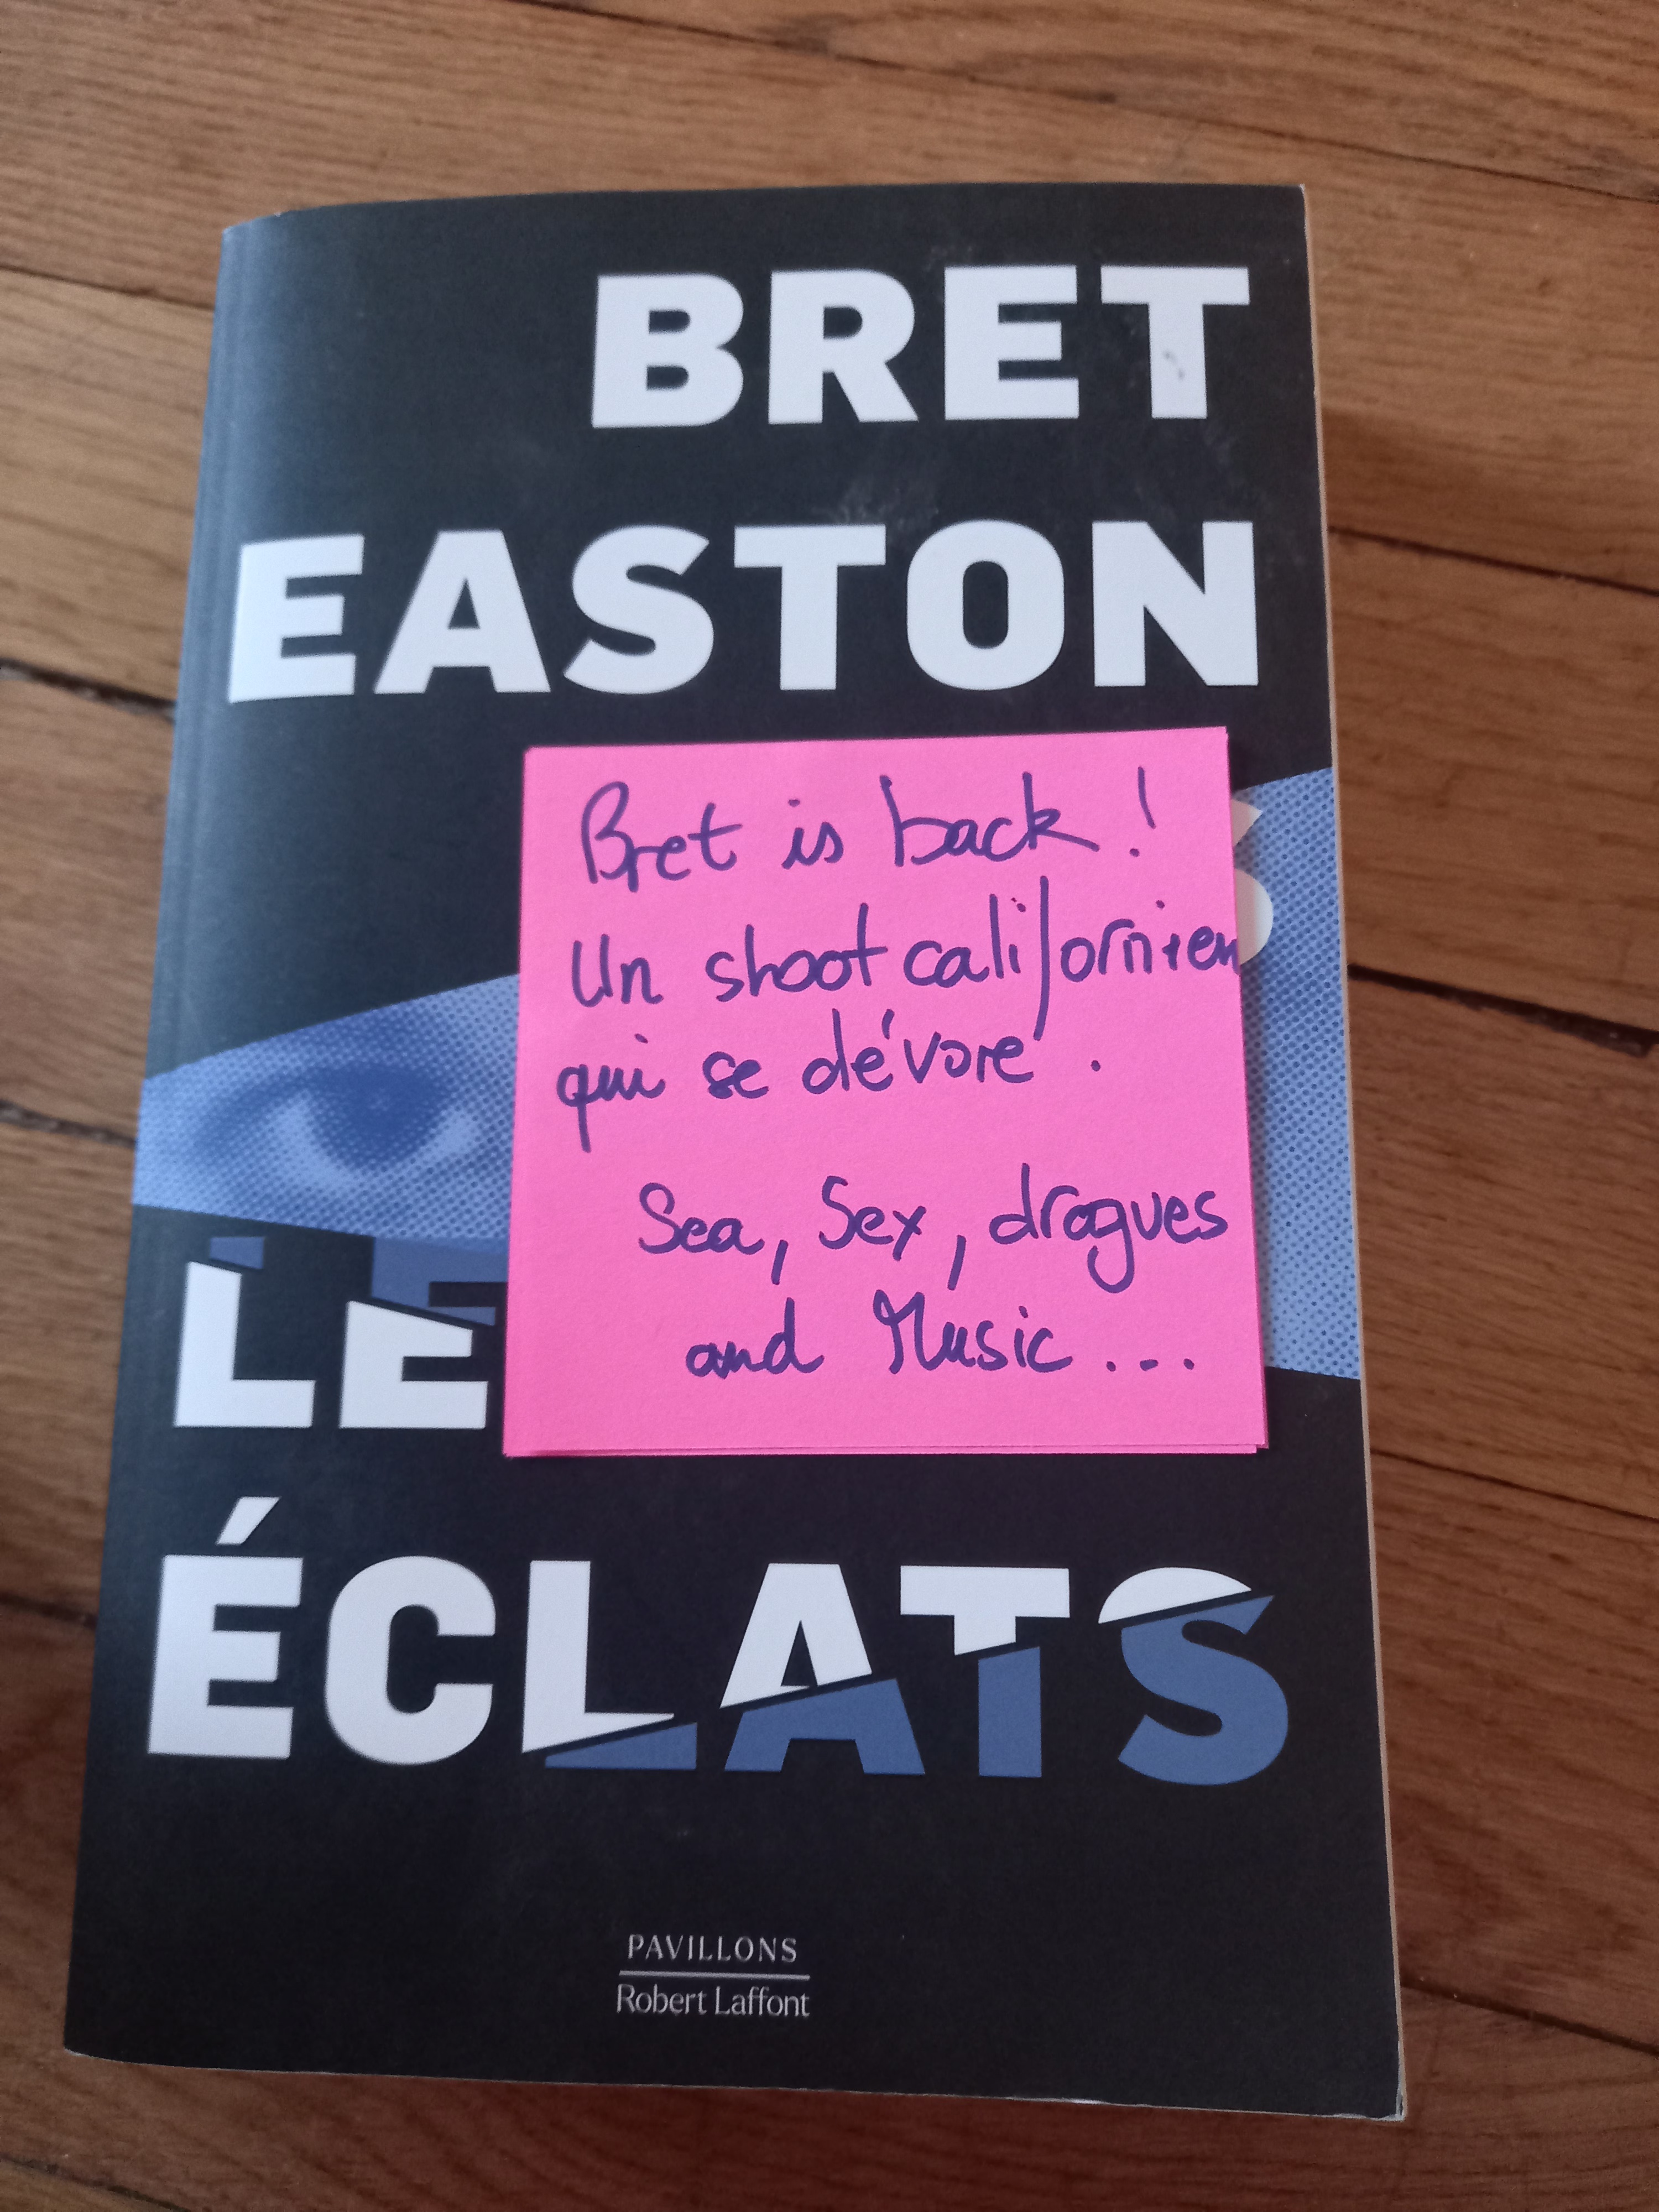 BRET
EASTON
S
Bret is back !
Un shoot californien
qui se dévore .
Sea, Sex, drogues
and Music ...
LE
ÉCLATS
PAVILLONS
Robert Laffont